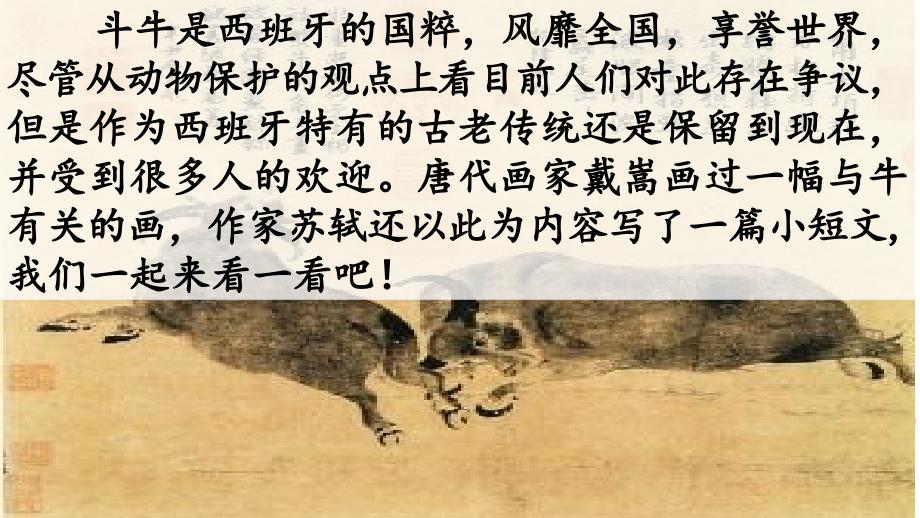 斗牛是西班牙的国粹，风靡全国，享誉世界，
尽管从动物保护的观点上看目前人们对此存在争议，
但是作为西班牙特有的古老传统还是保留到现在，
并受到很多人的欢迎。唐代画家戴嵩画过一幅与牛
有关的画，作家苏轼还以此为内容写了一篇小短文，
我们一起来看一看吧！